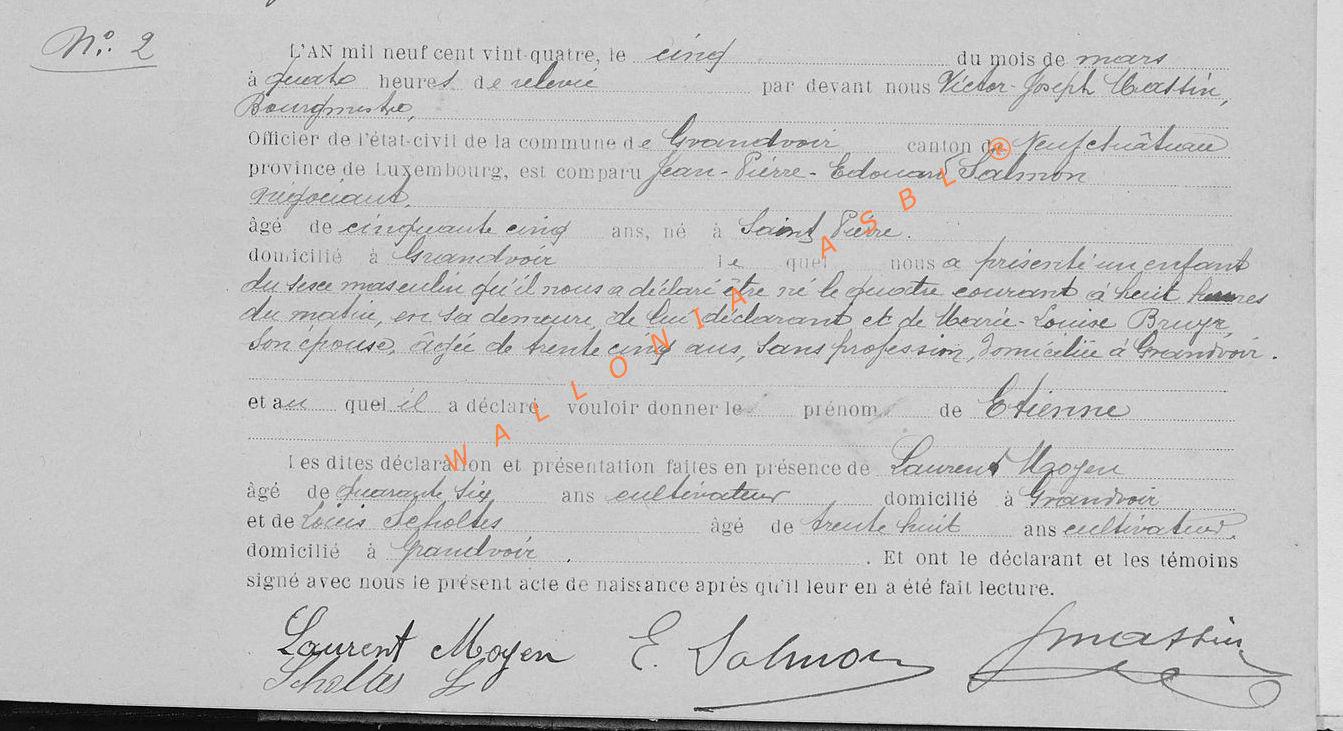 N°. 2
L'AN mil neuf cent vint-quatre, le cinq du mois de mars
à quatre heures de relevée par devant nous Victor-Joseph Massin,
Bourgmestre,
Officier de l'état-civil de la commune de Grandvoir canton de Neufchâteau
province de Luxembourg, est comparu Jean-Pierre-Edouard Salmon
négociant,
âgé de cinquante cinq ans, né à Saint Pierre.
domicilié à Grandvoir le quel nous a présenté un enfant
du sexe masculin qu'il nous a déclaré être né le quatre courant à huit heures
du matin, en sa demeure, de lui déclarant et de Marie-Louise
son épouse, âgée de trente cinq ans, sans profession, domiciliée à Grandvoir.
et au quel il a déclaré vouloir donner le prénom de Etienne
Les dites déclaration et présentation faites en présence de Laurent Moyen
âgé de quarante six ans cultivateur domicilié à Grandvoir
et de Louis Scholtes âgé de trente huit ans cultivateur.
domicilié à Grandvoir . Et ont le déclarant et les témoins
signé avec nous le présent acte de naissance après qu'il leur en a été fait lecture.
Laurent Moyen E. Salmon Jmassin
Scholtes L
WALLONIA ASBL ®